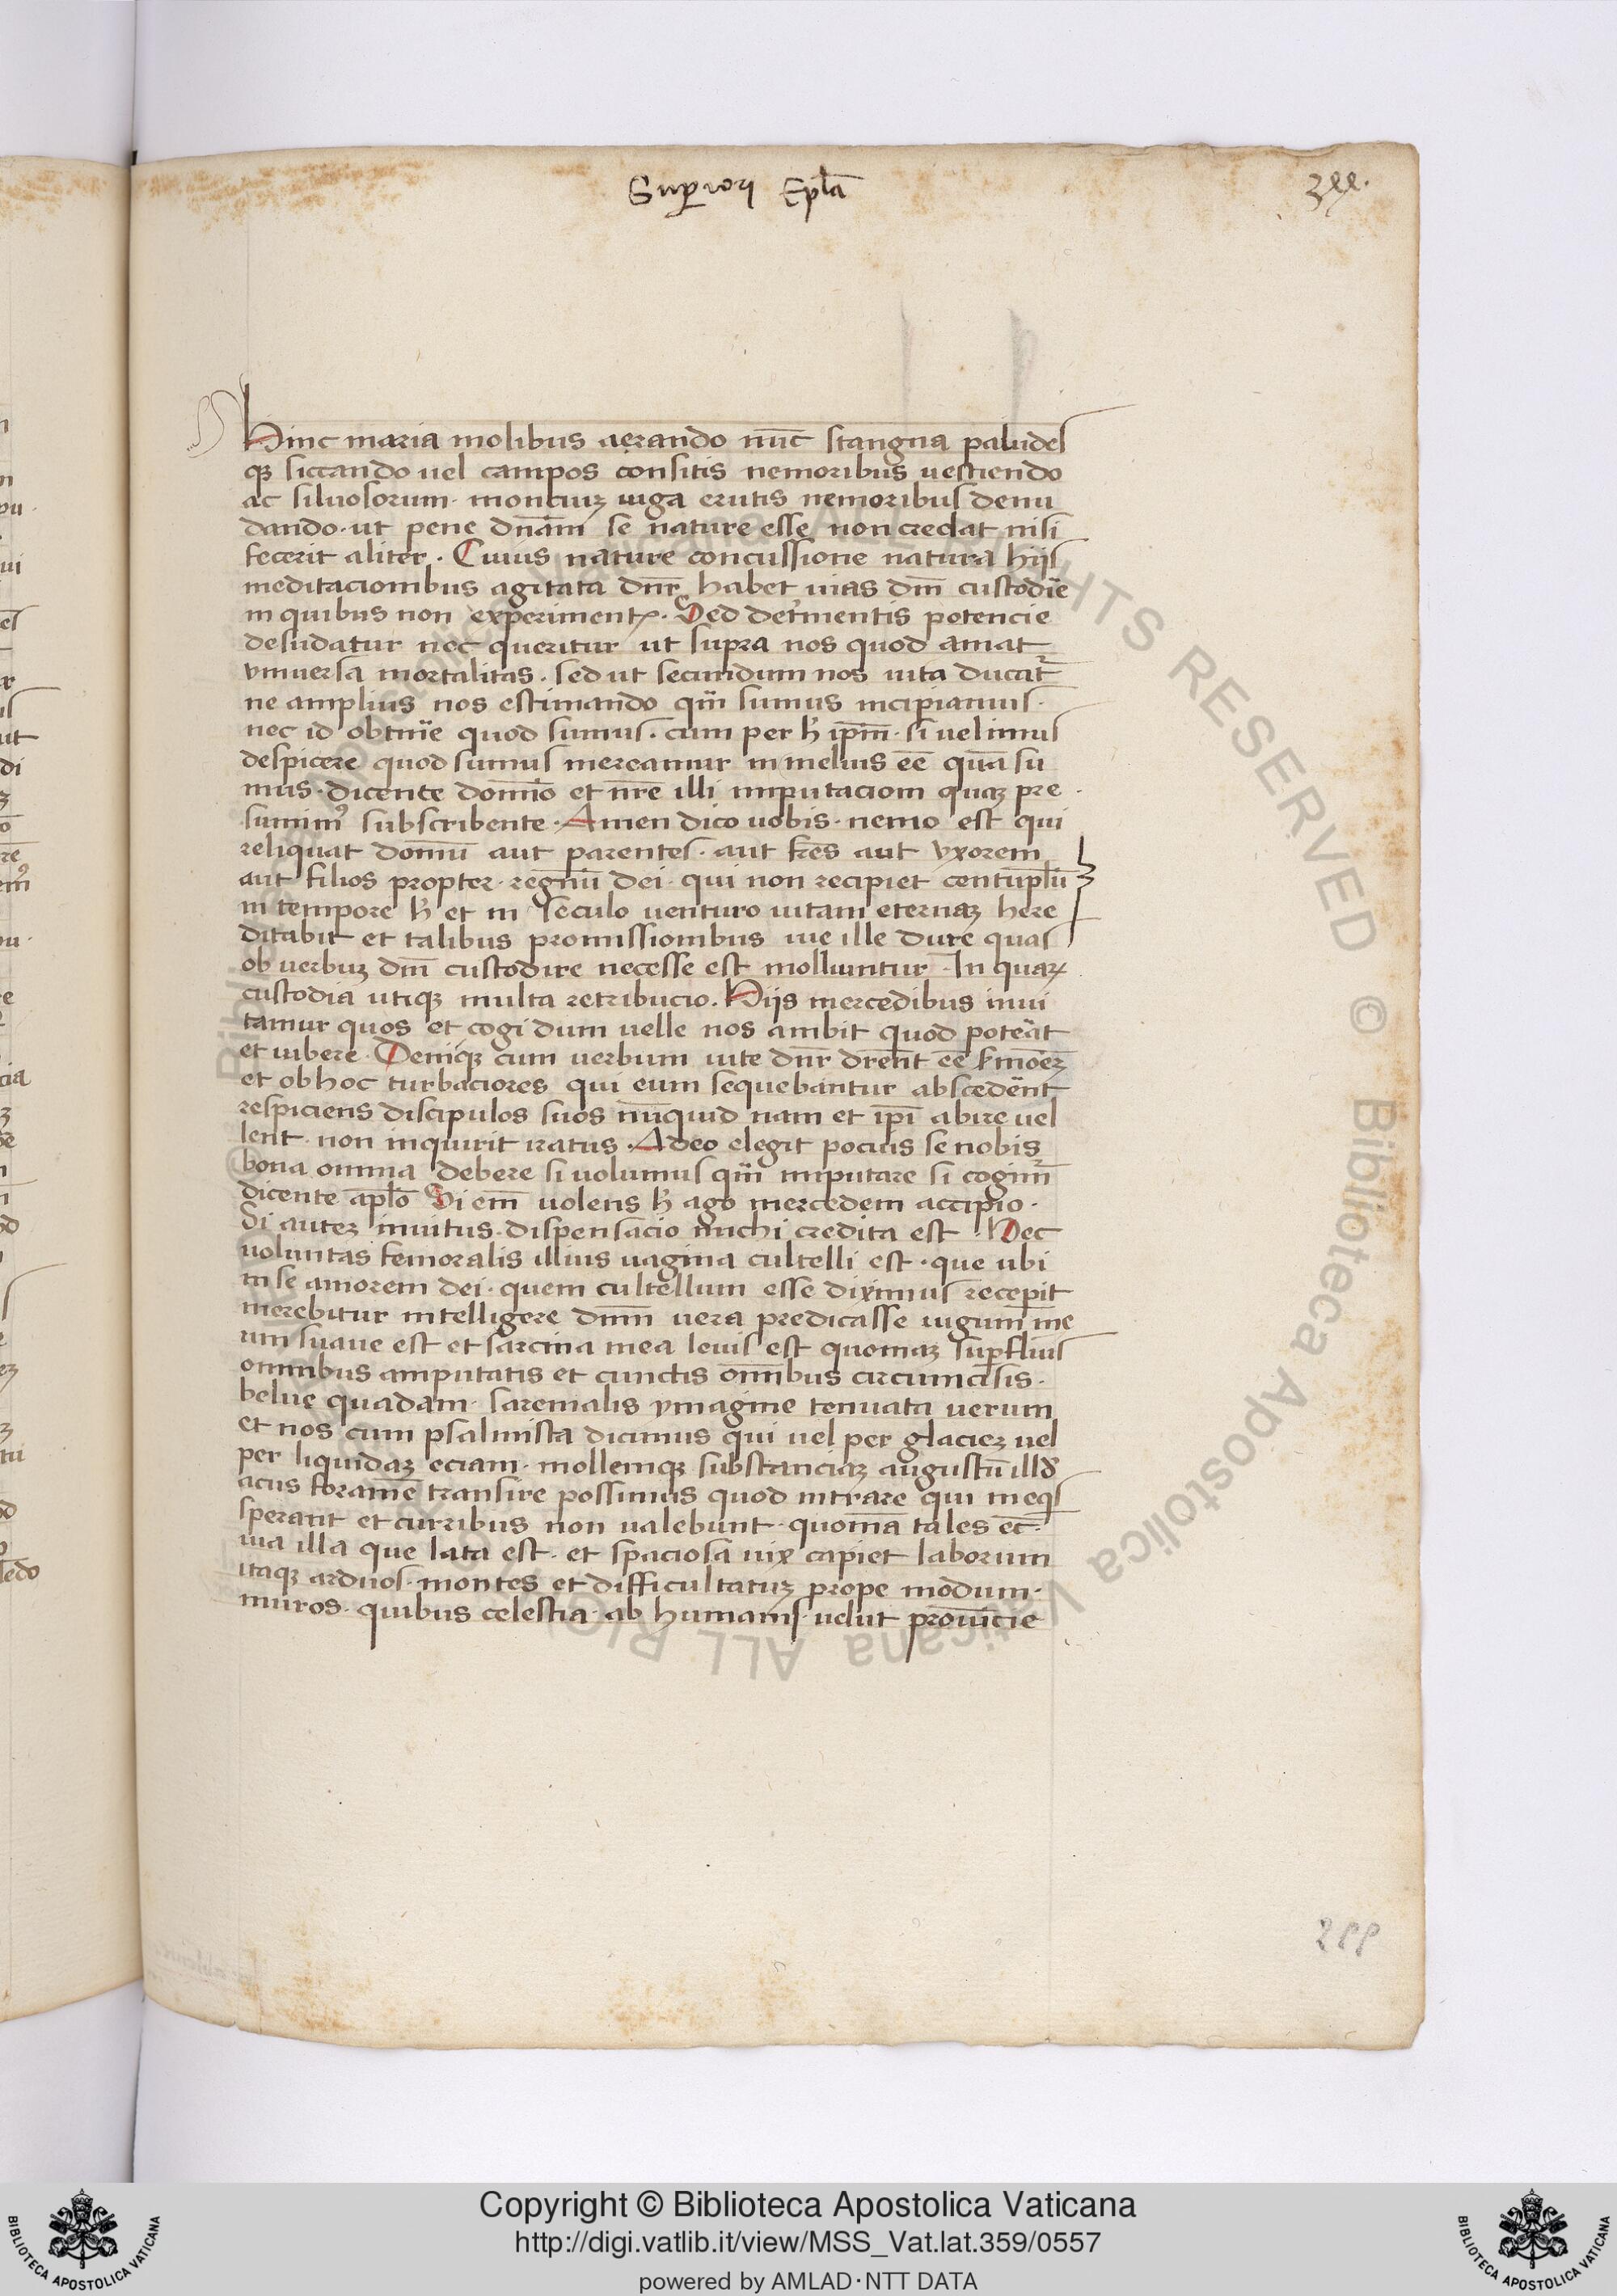 Supiori Epla
Hinc maria molibus aerando nūc stangna paludes
qꝫ siccando uel campos consitis nemoribus uestiendo
ac siluosorum· montiuꝫ iuga erutis nemoribus denu
dando· ut pene dnam̄ se nature esse non credat nisi
fecerit aliter· Cuius nature concussione natura hijs
meditacionibus agitata dnr̄ habet uias dnī custodie
in quibus non experiment᷑· Sed det̄mentis potencie
desudatur nec queritur ut supra nos quod amat
vniuersa mortalitas· sed ut secundum nos uita ducat᷑
ne amplius nos estimando qm̄ sumus incipiamus·
nec id obtinē quod sumus· cum per h̄ ip̄m· si uelimus
despicere quod sumus mereamur in melius eē quā su
mus· dicente domīo et nr̄e illi imputaciom quaꝫ pre·
sumimꝰ subscribente· Amen dico uobis· nemo est qui
reliquat domū aut parentes· aut fr̄es aut vxorem
aut filios propter· regnū dei· qui non recipiet centuplū
in tempore h̄ et in seculo venturo uitam eternaꝫ here
ditabit et talibus promissionibus uie ille dure quas
ob uerbuꝫ dnī custodire necesse est molliuntur· In quaꝝ
custodia utiqꝫ multa retribucio· Hijs mercedibus inui
tamur quos et cogi dum uelle nos ambit quod poteāt
et iubere· Deniqꝫ cum uerbum uite dnr̄ dr̄ent eē
et ob hoc turbaciores qui eum sequebantur abscedēnt
respiciens discipulos suos nūquid nam et ip̄i abire uel
lent· non inquirit iratus· Adeo elegit pocius se nobis
bona omnia debere si uolumus qm̄ imputare si cogim᷑
dicente ap̄lo Si em̄ uolens h̄ ago mercedem accipio·
Si auteꝫ inuitus· dispensacio michi credita est· Hec
uoluntas femoralis illius uagina cultelli est· que ubi
in se amorem dei· quem cultellum esse diximus recep̄it
merebitur intelligere dnm̄ uera predicasse iugum me
um suaue est et sarcina mea leuis est quoniaꝫ sup̄fluis
omnibus amputatis et cunctis om̄ibus circumcisis·
belue quadam· sarcinalis ymagine tenuata uerum
et nos cum psalmista dicimus qui uel per glacieꝫ uel
per liquidaꝫ eciam· mollemqꝫ substanciaꝫ augustū illd̄
acus foramē transire possimus quod intrare qui in eqs̄
sperant et curribus non ualebunt· quomā tales ec̄·
uia illa que lata est· et spaciosa uix capiet laborum
itaqꝫ arduos· montes et difficultatuꝫ prope modum·
muros· quibus celestia· ab humanis· uelut prouīcie
Copyright © Biblioteca Apostolica Vaticana
http://digi.vatlib.it/view/MSS_Vat.lat.359/0557
powered by AMLAD·NTT DATA
BIBLIOTECA APOSTOLICA VATICANA
BIBLIOTECA APOSTOLICA VATICANA